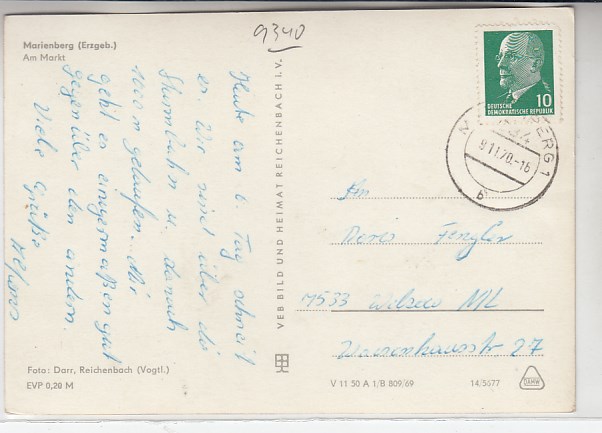 Marienberg (Erzgeb.)
Am Markt
9340
Heute am 6. Tag schneit
es. Wir sind über die
Sturmbahn u. danach
geht es einigermaßen gut
gegenüber den andern.
Viele Grüße
Foto: Darr, Reichenbach (Vogtl.)
EVP 0,20 M
VEB BILD UND HEIMAT REICHENBACH I. V.
DEUTSCHE
DEMOKRATISCHE REPUBLIK
10
ERG 1
9.11.70.-16
b
An
Doris Fengler
7533 Welzow NL
Waisenhausstr 27
V 11 50 A 1/B 809/69
14/5677
DAMW